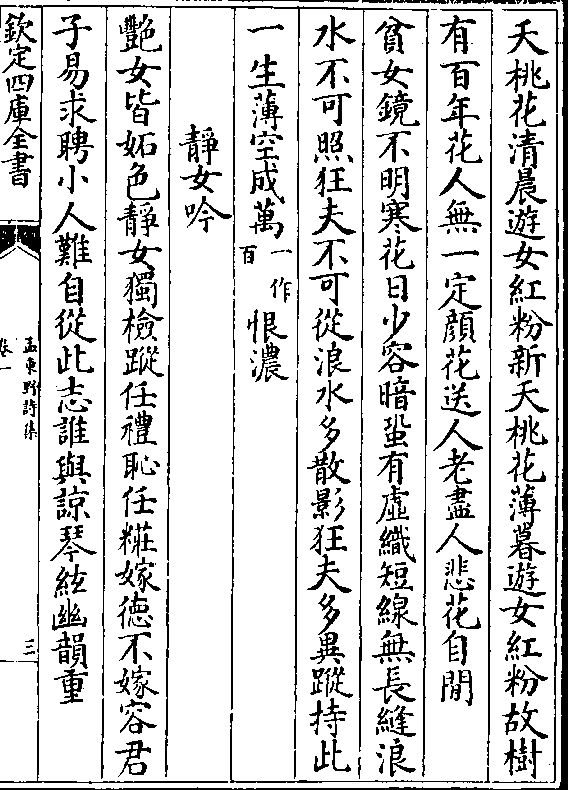 夭桃花清晨遊女紅粉新夭桃花薄暮遊女紅粉故樹
有百年花人無一定顔花送人老盡人悲花自閒
貧女鏡不明寒花日少容暗蛩有虛織短線無長縫浪
水不可照狂夫不可從浪水多散影狂夫多異蹤持此
一生薄空成萬一作百恨濃
靜女吟
艷女皆妬色靜女獨檢蹤任禮恥任粧嫁德不嫁容君
子易求聘小人難自從此志誰與諒琴絃幽韻重
欽定四庫全書
孟東野詩集
卷一
三